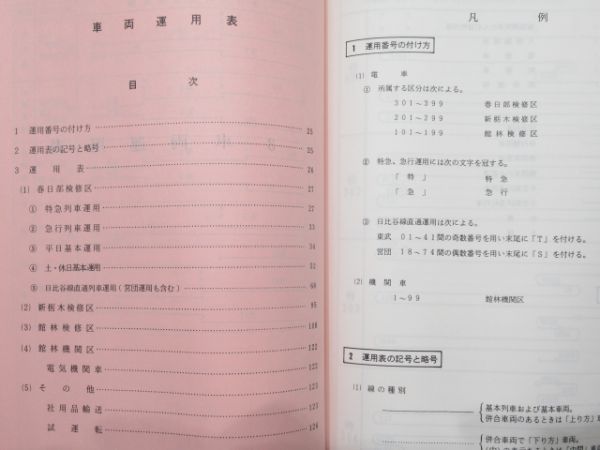 車両運用表
目次
1 運用番号の付け方 25
2 運用表の記号と略号 25
3 運用表 26
(1) 春日部検修区 27
① 特急列車運用 27
② 急行列車運用 33
③ 平日基本運用 34
④ 土・休日基本運用 52
⑤ 日比谷線直通列車運用（営団運用も含む） 68
(2) 新栃木検修区 95
(3) 館林検修区 108
(4) 館林機関区 122
電気機関車 122
(5) その他 123
社用品輸送 123
試運転 124
凡例
1 運用番号の付け方
(1) 電車
① 所属する区分は次による。
301～399 春日部検修区
201～299 新栃木検修区
101～199 館林検修区
② 特急、急行運用には次の文字を冠する。
「特」 特急
「急」 急行
③ 日比谷線直通運用は次による。
東武 01～41間の奇数番号を用い末尾に「T」を付ける。
営団 18～74間の偶数番号を用い末尾に「S」を付ける。
(2) 機関車
1～99 館林機関区
2 運用表の記号と略号
(1) 線の種別
基本列車および基本車両。
併合車両のあるときは「上り方」車
併合車両で「下り方」車両。